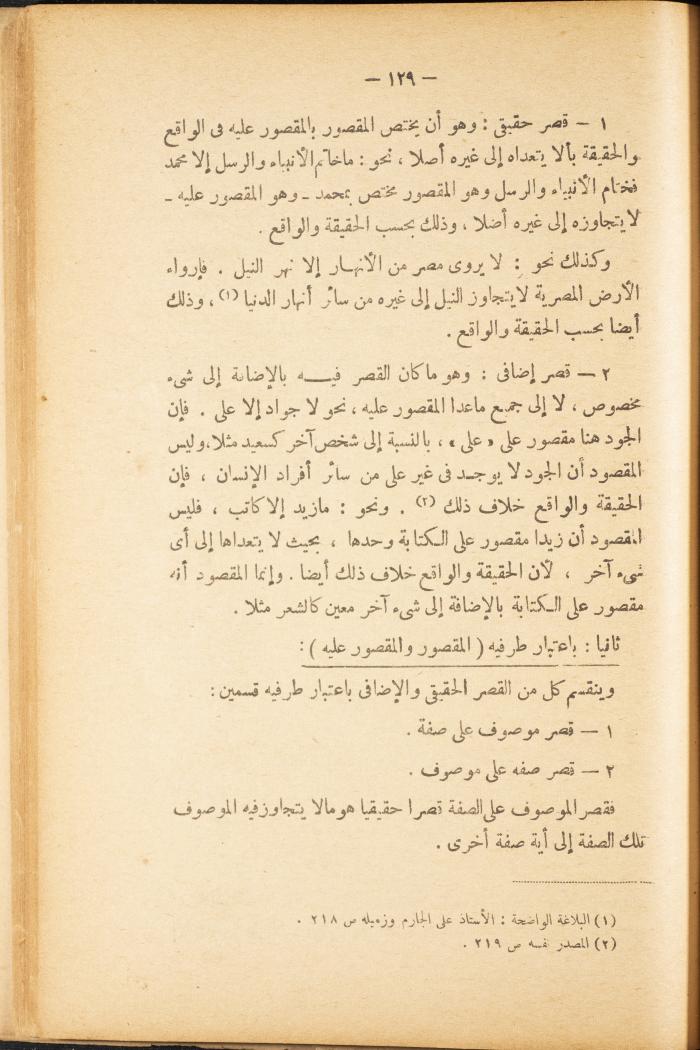 — ١٢٩ —
١ — قصر حقيقى : وهو أن يختص المقصور بالمقصور عليه فى الواقع
والحقيقة بألا يتعداه إلى غيره أصلا ، نحو : ما خاتم الأنبياء والرسل إلا محمد
فختام الأنبياء والرسل وهو المقصور مختص بمحمد ـ وهو المقصور عليه ـ
لا يتجاوزه إلى غيره أصلا ، وذلك بحسب الحقيقة والواقع .
وكذلك نحو : لا يروى مصر من الأنهار إلا نهر النيل . فإرواء
الأرض المصرية لا يتجاوز النيل إلى غيره من سائر أنهار الدنيا (١) ، وذلك
أيضا بحسب الحقيقة والواقع .
٢ — قصر إضافى : وهو ما كان القصر فيه بالإضافة إلى شىء
مخصوص ، لا إلى جميع ماعدا المقصور عليه ، نحو لا جواد إلا على . فإن
الجود هنا مقصور على « على » ، بالنسبة إلى شخص آخر كسعيد مثلا ، وليس
المقصود أن الجود لا يوجد فى غير على من سائر أفراد الإنسان ، فإن
الحقيقة والواقع خلاف ذلك (٢) . ونحو : مازيد إلا كاتب ، فليس
المقصود أن زيدا مقصور على الكتابة وحدها ، بحيث لا يتعداها إلى أى
شىء آخر ، لأن الحقيقة والواقع خلاف ذلك أيضا . وإنما المقصود أنه
مقصور على الكتابة بالإضافة إلى شىء آخر معين كالشعر مثلا .
ثانيا : باعتبار طرفيه ( المقصور والمقصور عليه ) :
وينقسم كل من القصر الحقيقى والإضافى باعتبار طرفيه قسمين :
١ — قصر موصوف على صفة .
٢ — قصر صفه على موصوف .
فقصر الموصوف على الصفة قصرا حقيقيا هو مالا يتجاوز فيه الموصوف
تلك الصفة إلى أية صفة أخرى .
(١) البلاغة الواضحة : الأستاذ على الجارم وزميله ص ٢١٨ .
(٢) المصدر نفسه ص ٢١٩ .